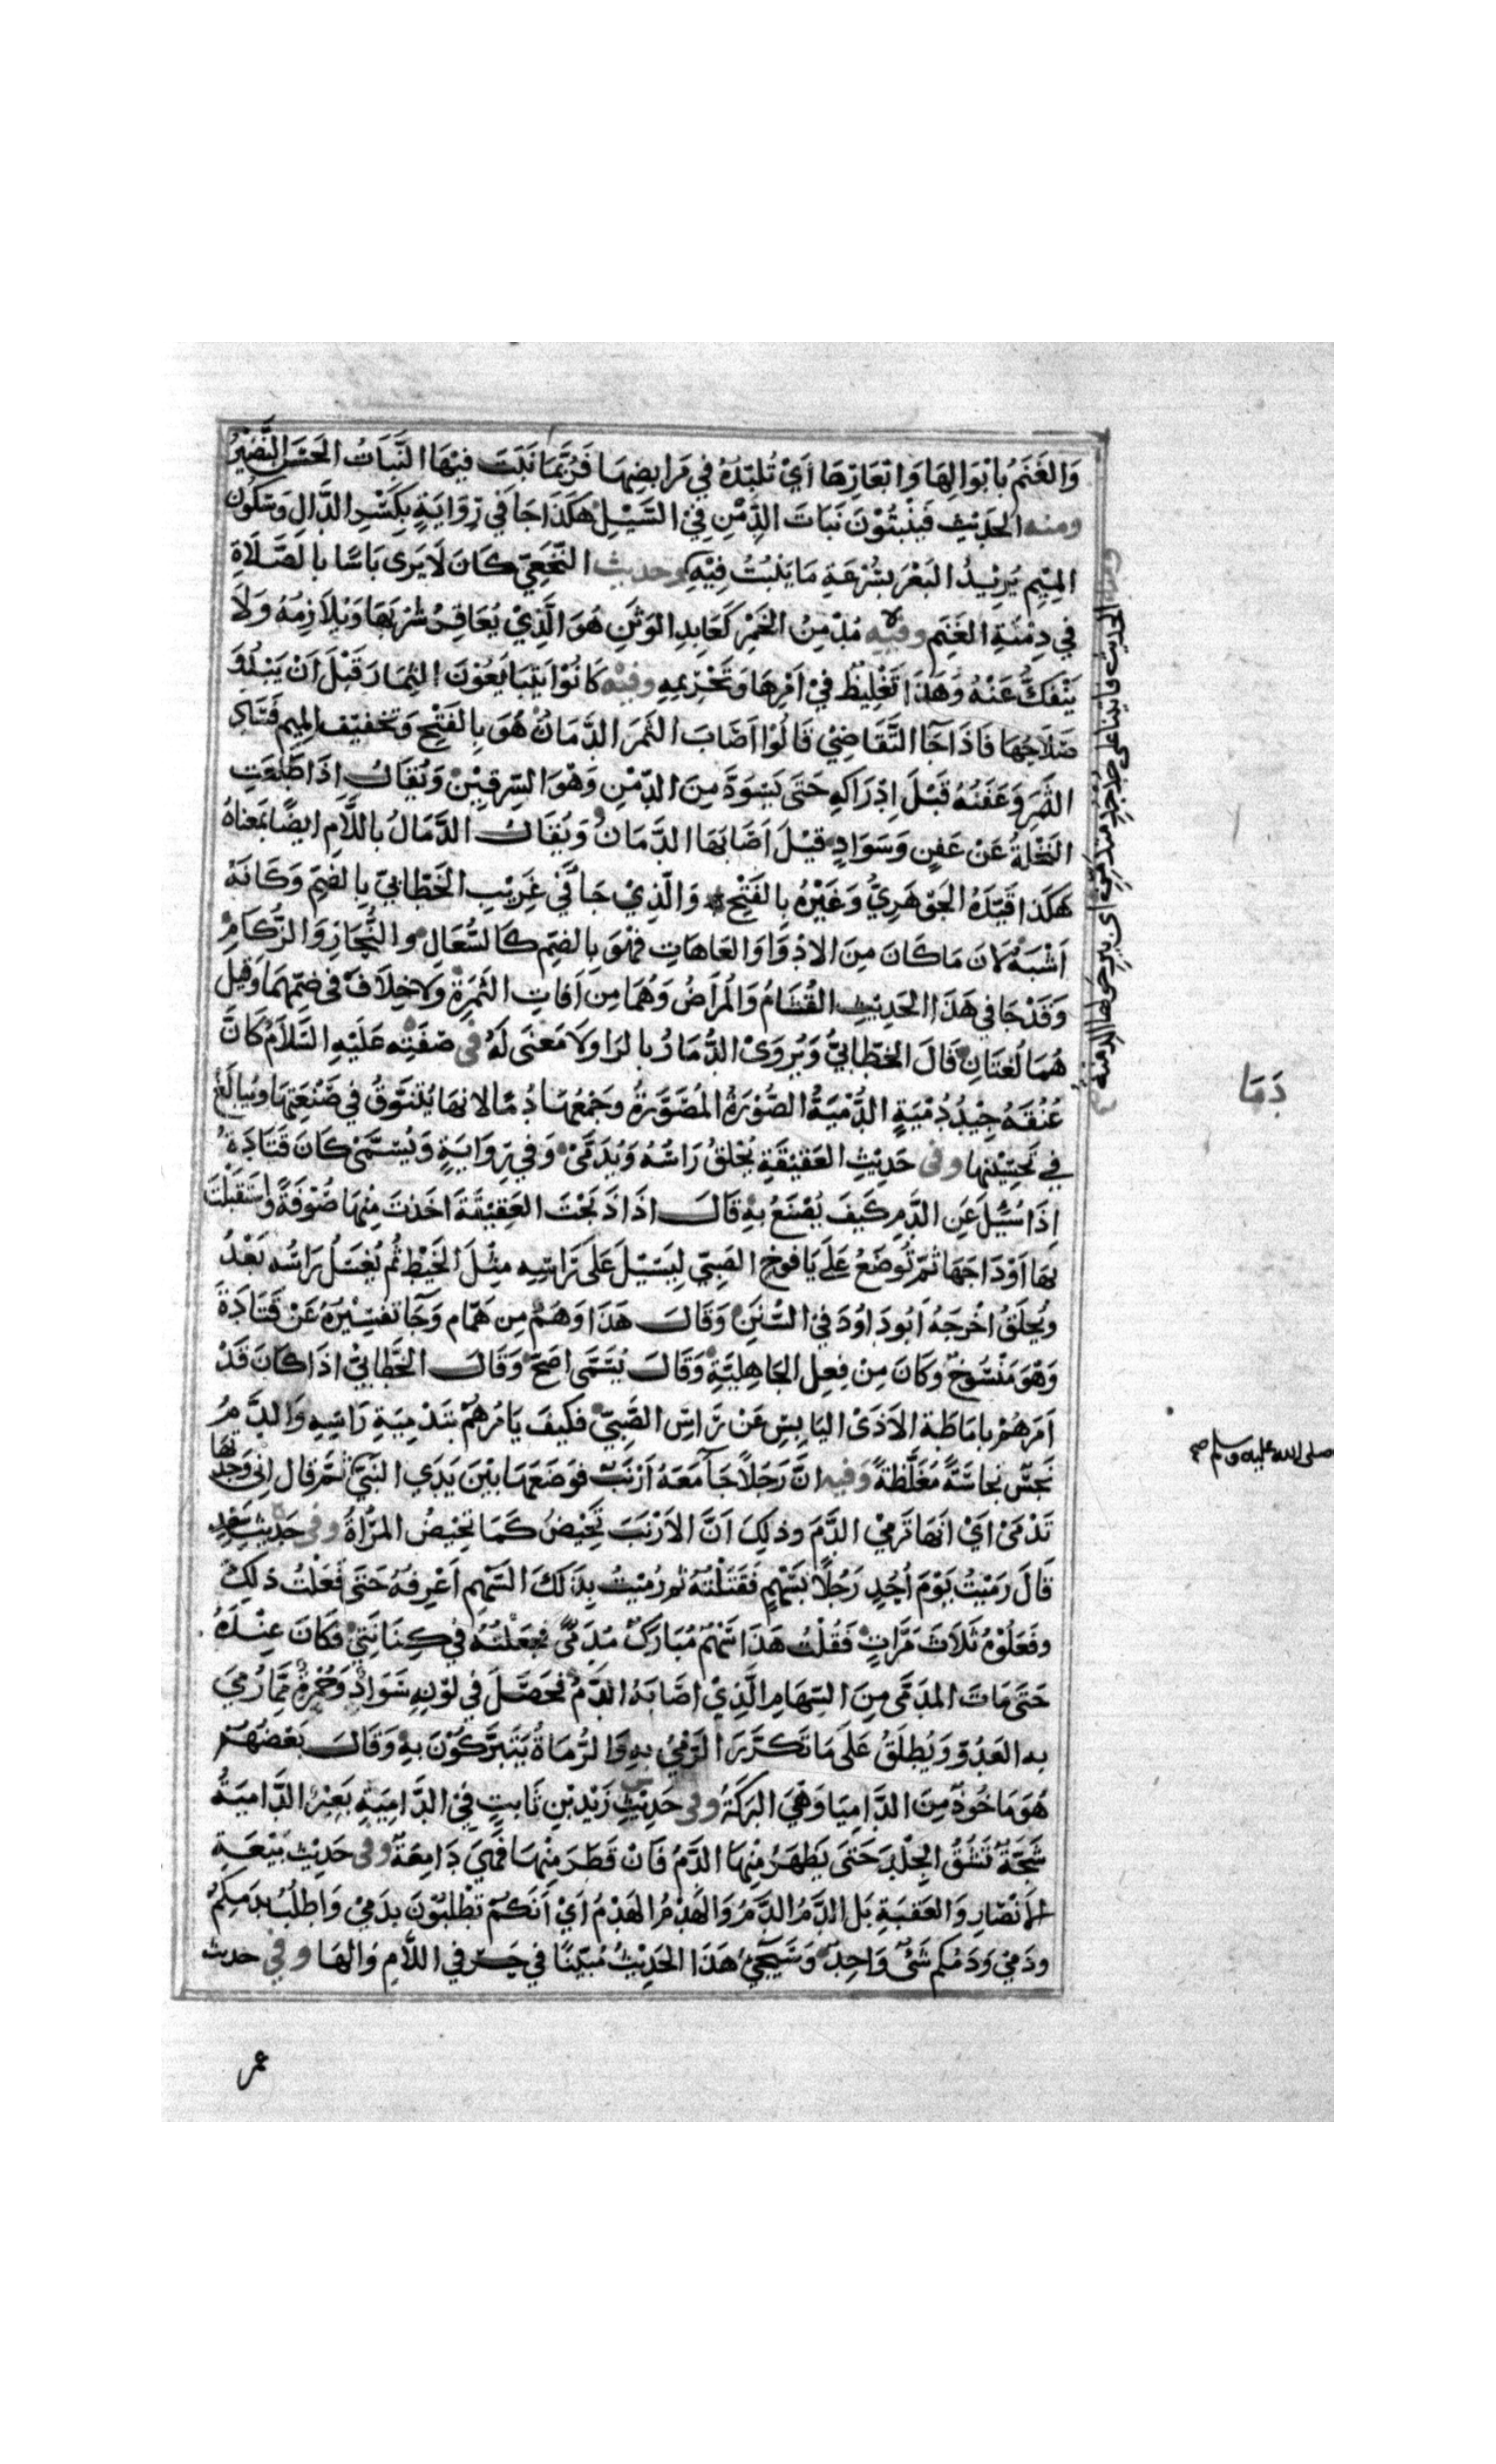 وَالغَنَمُ بِاَبْوَالِهَا وَابْعَارِهَا اَيْ تُلَبِّدُهُ فِي مَرَابِضِهَا فَرُبَّمَا نَبَتَ فِيْهَا النَّبَاتُ الحَسَنُ النَّضِيْرُ
ومنه الحَدِيْثِ فَيَنْبُتُوْنَ نَبَاتَ الدِّمْنِ فِيْ السَّيْلِ هَكَذَا جَا فِي رِوَايَةٍ بِكَسْرِ الدَّالِ وَسُكُونِ
المِيْمِ يُرِيْدُ البَعْرَ بِسُرْعَةِ مَا يَنْبُتُ فِيْهِ وحديث النَّخَعِيّ كَانَ لَا يَرَى بَاسًا بِالصَّلَاةِ
فِي دِمْنَةِ الغَنَمِ وفيه مُدْمِنُ الخَمْرِ كَعَابِدِ الوَثَنِ هُوَ الَّذِيْ يُعَاقِرُ شُرْبَهَا وَيُلَازِمُهُ وَلَا
يَنْفَكُّ عَنْهُ وَهَذَا تَغْلِيْظٌ فِيْ اَمْرِهَا وَتَحْرِيمِهِ وفيه كَانُوْا يَتَبَايَعُوْنَ الثِمَارَ قَبْلَ اَنْ يَبْدُوَ
صَلَاحُهَا فَاذَا جَا التَّقَاضِيْ قَالُوْا اَصَابَ الثَمَرَ الدَّمَانُ هُوَ بِالفَتْحِ وَتخفيف الميم فَسَادُ
الثَمَرِ وَعَفَنُهُ قَبْلَ اِدْرَاكِهِ حَتَى يَسْوَدَّ مِنَ الدِّمْنِ وَهْوَ السِّرقِيْنُ وَيُقَالُ اذَا طَلَعَتِ
النَخْلَةُ عَنْ عَفَنٍ وَسَوَادٍ قِيْلَ اَصَابَهَا الدَّمَانُ وَيُقَالُ الدَّمَالُ بِاللَّامِ ايضًا بمَعناهُ
هكَذَا قَيَّدَهُ الجَوْهَرِيُّ وَغَيْرُهُ بِالفَتْحِ وَالَّذِيْ جَا فِي غَرِيْبِ الخَطّابيّ بِالضَمِّ وَكَانَهُ
اَشْبَهُ لانَ مَا كَانَ مِنَ الادْوَا وَالعَاهَاتِ فَهْوَ بِالضمِّ كَالسُّعَالِ والنُّحَازِ وَالزُّكَامِ
وَقَدْ جَا في هَذَا الحَدِيْثِ القُشَامُ وَالمُرَاضُ وَهُمَا مِنْ اَفَاتِ الثَمَرَةِ وَلا خِلَافَ في ضمِّهِمَا وَقِيلَ
هُمَا لُغَتَانِ قَالَ الخَطّابيُّ وَيُروَىْ الدُّمَارُ بالرَا وَلَا مَعْنَى لَهُ في صَفَتِهِ عَلَيْهِ السَّلَامُ كَانَّ
عُنُقَهُ جِيْدُ دُمْيَةٍ الدُّمْيَةُ الصُّوْرَةُ المُصَوَّرَةُ وجَمْعُهَا دُمًا لانهَا يُتَنَوَّقُ فِي صَنْعَتِهَا وَيُبَالَغُ
فِي تَحْسِيْنِهَا وفي حَدِيْثِ العَقِيْقَةِ يُحْلَقُ رَاسُهُ وَيُدَمَّىْ وَفي رِوَايَةٍ وَيُسَمَّىْ كَانَ قَتَادَةُ
اذَا سُئِلَ عَنِ الدَّمِ كَيْفَ يُصْنَعُ بِهِ قَالَ اذَا ذَبَحْتَ العَقِيْقَةَ اَخَذتَ مِنْهَا صُوْفَةً وَاسْتَقبَلْتَ
بِهَا اَوْدَاجَهَا ثمّ تُوضَعُ عَلَي يَافُوخِ الصَبِيّ لِيَسِيْلَ عَلَى رَاسِهِ مِثْلَ الخَيْطِ ثُم يُغسَلُ رَاسُه بَعْدُ
ويُحلَقُ اخْرَجَهُ اَبُو دَاوُدَ فِيْ السُّنَنِ وَقَالَ هَذَا وَهَمٌ مِن هَمَّام وَجَا تفسِيْرَهُ عَنْ قَتَادَةَ
وَهْوَ مَنْسُوخٌ وكَانَ مِنْ فِعلِ الجَاهِلِيَّةِ وَقَالَ يُسَمَّى اَصَحّ وَقَالَ الخَطّابيْ اذَا كَانَ قَدْ
اَمَرَهُمْ بِامَاطَةِ الاَذَىْ اليَابِسِ عَنْ رَاسِ الصَّبِيّ فَكَيفَ يَامُرهُمْ بتَدْمِيَةِ رَاسِهِ وَالدَّمُ
نَجِسٌ نجَاسَةً مُغَلَّظةً وَفيه انَّ رَجُلًا جَآ مَعَهُ اَرْنَبٌ فوَضَعَهَا بيْنَ يَدَيِ النَبِيّ ثمّ قال اِنِي وَجَدْتهَا
تَدْمَىْ اَيْ انهَا تَرمِيْ الدَّمَ وذلِكَ اَنَّ الاَرْنَبَ تَحِيْضُ كَمَا تحِيْضُ المَرْاةُ وفي حَدِيْثِ سَعْدٍ
قَالَ رَمَيْتُ يَوْمَ اُحُدٍ رَجُلًا بِسَهْمٍ فَقَتَلْتُهُ ثم رُمِيْتُ بِذَلكَ السَّهْمِ اَعْرِفُهُ حَتَى فَعَلْتُ ذلِكَ
وفَعَلُوْهُ ثَلَاثَ مَرَّاتٍ فَقُلْتُ هَذَا سَهْمٌ مُبَارَكٌ مُدَمَّىً فجَعَلْتُهُ فِي كِنَانَتِيْ فَكَانَ عِنْدَهُ
حَتَى مَاتَ المدَمَّى مِنَ السِّهَامِ الَّذِيْ اصَابَهُ الدَّمُ فحَصَلَ فِي لوْنِهِ سَوَادٌ وَحُمْرَةٌ ممَّا رُمِيَ
به العَدُوُّ وَيُطلَقُ عَلَى مَا تَكَرَّرَ الرَمْيُ بِهِ وَالرُّمَاةُ يَتَبَرَّكُوْنَ بِهِ وَقَالَ بَعْضُهُمْ
هُوَ مَاخُوْذٌ مِنَ الدَّامِيَا وَهْيَ البَرَكَةُ وفي حَدِيْثِ زَيْدِ بْنِ ثَابتٍ فِيْ الدَّامِيَةِ بَعِيْرٌ الدَّامِيَةُ
شَجّةٌ تَشُقُّ الجِلْدَ حَتَى يَظهَرَ مِنْهَا الدَّمُ فَانْ قَطَرَ مِنْهَا فَهْيَ دَامِعَةٌ وفي حَدِيْثِ بَيْعَةِ
الاَنْصَارِ وَالعَقَبَةِ بَلِ الدَّمُ الدَّمُ وَالهَدْمُ الهَدْمُ اَيْ اَنكُمْ تُطْلَبُوْنَ بِدَمِيْ وَاُطلَبُ بدَمِكُمْ
ودَمِيْ وَدَمُكُم شَئٌ وَاحِدٌ وَسَيَجِيْءُ هَذَا الحَدِيْثُ مُبَيَّنًا فِي حَرْفِي اللَّامِ وَالهَا وفي حديث
عمر
الحديث فاتينا على جُدْجُدٍ مُتدَمِّنٍ اي بيرٍ حولها الدمنة
دَمَا
صلى الله عليه وسلم صح